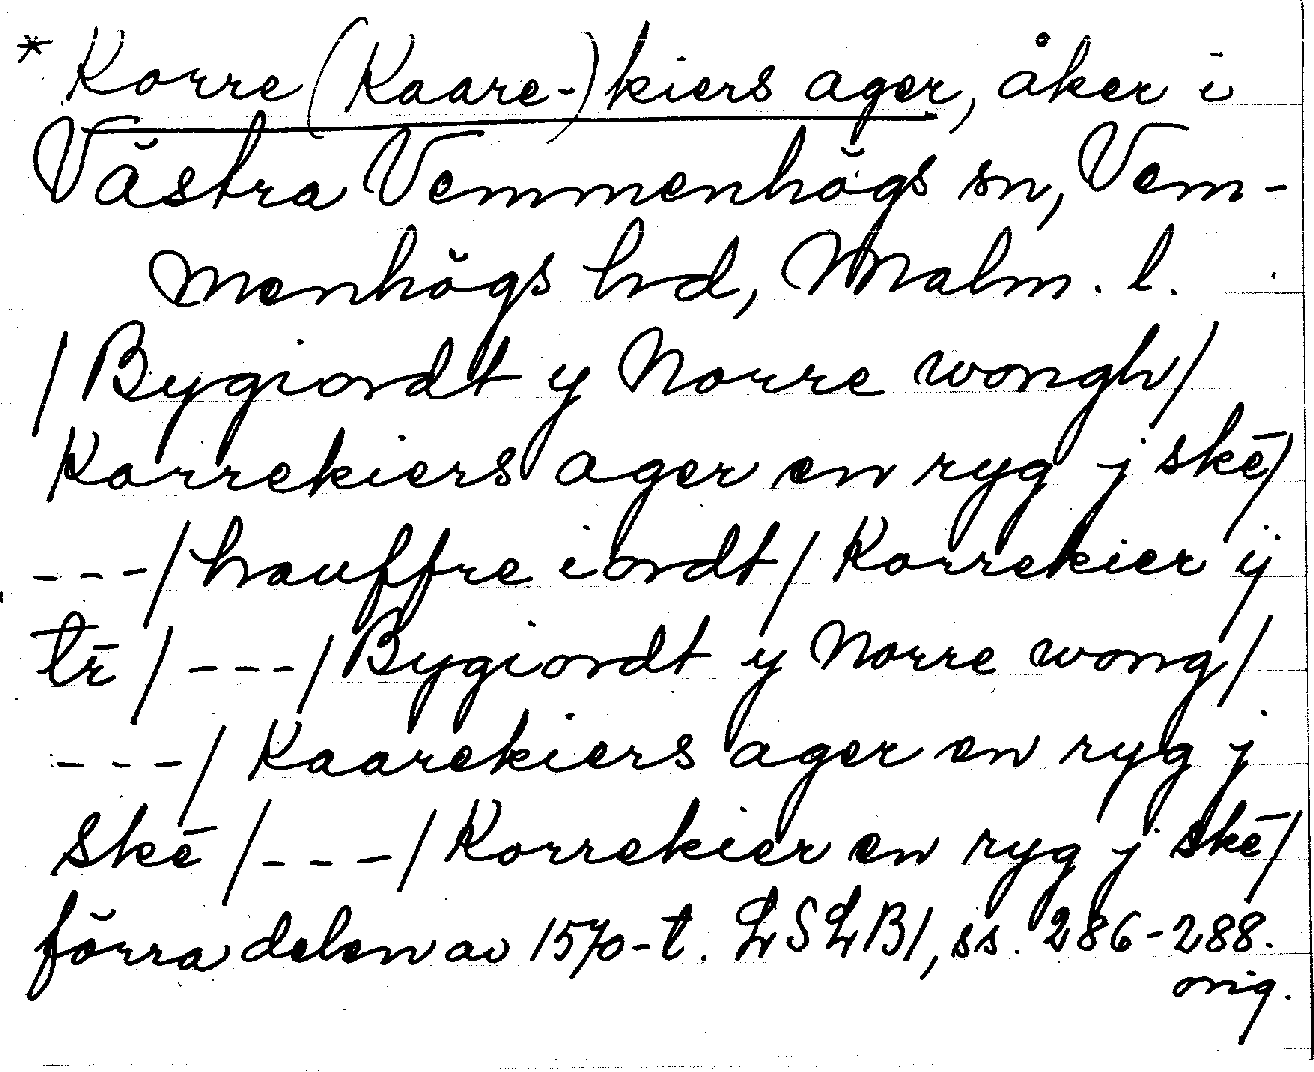 * Korre (Kaare-) kiers ager, åker i
Västra Vemmenhögs sn, Vem-
menhögs hd, Malm. l.
/ Bygiordt y Norre wongh /
Korrekiers ager en ryg j skē /
--- / hauffre iordt / Korrekier ÿ
tr̄ / --- / Bygiordt y Norre wong /
--- / Kaarekiers ager en ryg j
skē / --- / Korrekier en ryg j skē /
förra delen av 1570-t. LSLB1, ss. 286-288.
orig.